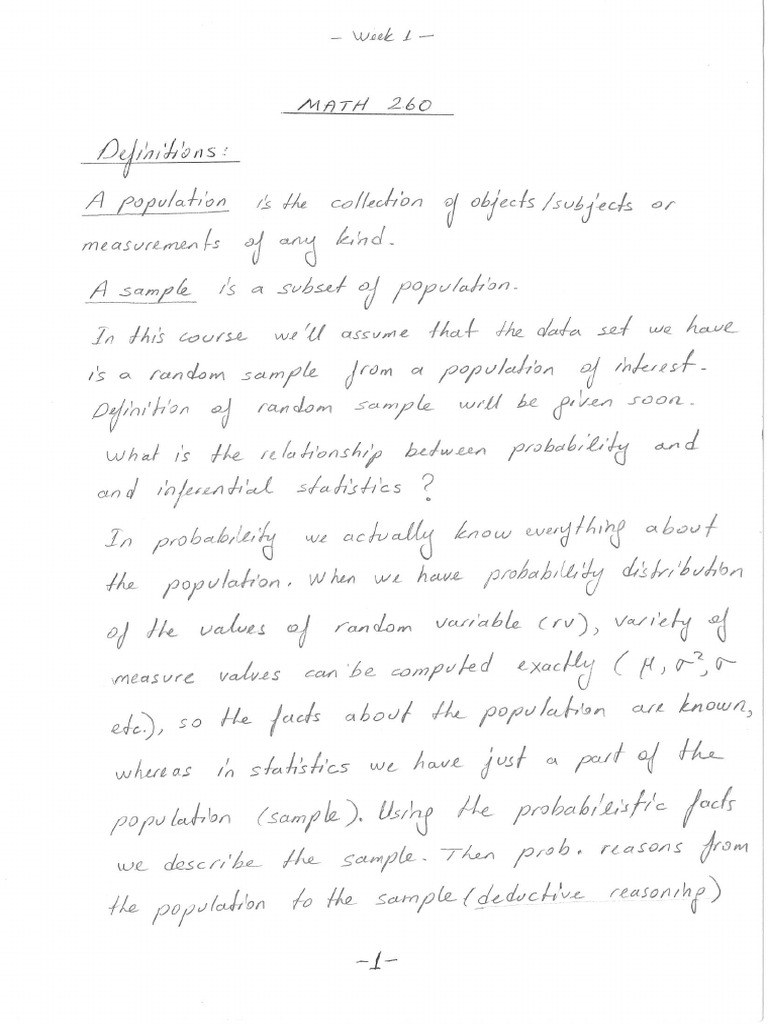 - Week 1 -
MATH 260
Definitions:
A population is the collection of objects/subjects or
measurements of any kind.
A sample is a subset of population.
In this course we'll assume that the data set we have
is a random sample from a population of interest.
Definition of random sample will be given soon.
What is the relationship between probability and
and inferential statistics?
In probability we actually know everything about
the population. When we have probability distribution
of the values of random variable (rv), variety of
measure values can be computed exactly (μ, σ², σ
etc.), so the facts about the population are known,
whereas in statistics we have just a part of the
population (sample). Using the probabilistic facts
we describe the sample. Then prob. reasons from
the population to the sample (deductive reasoning)
-1-